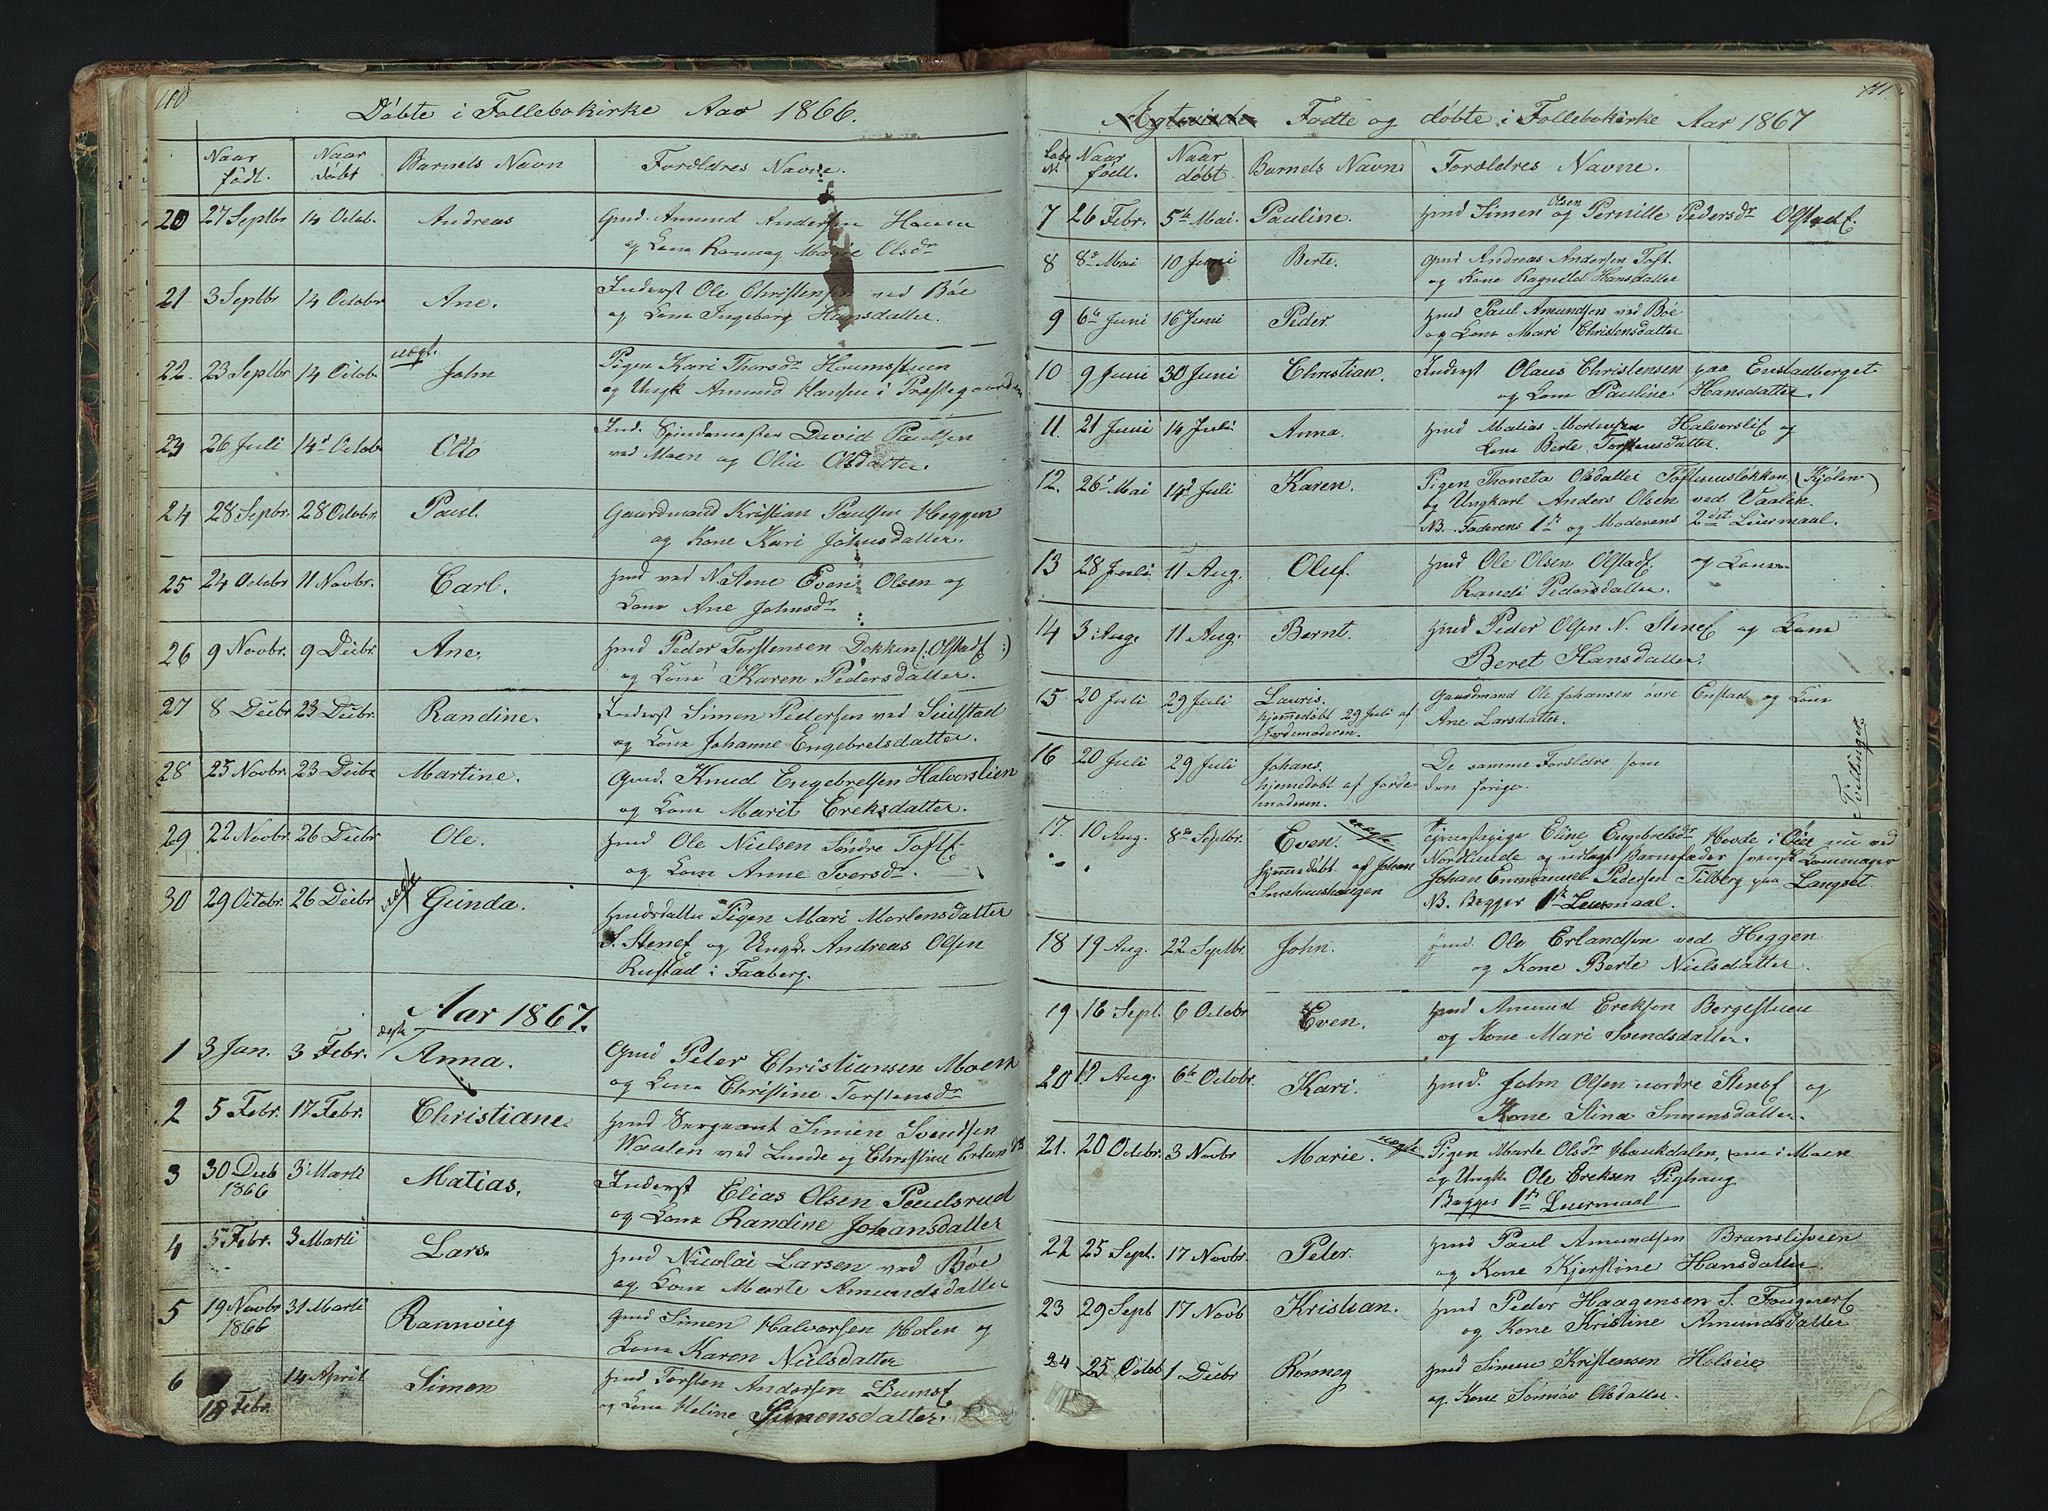 110
Döbte i Follebokirke Aar 1866.
Naar födt. Naar döbt Barnets Navn Forældres Navne.
20 27 Septbr 14 Octob. Andreas Gmd. Amund Andersen
og Kone Marie Olsdr
21 3 Septbr 14 Octobr Ane. Inderst Ole Christensen ved Böe
og Kone Ingeborg Hansdatter.
22. 23 Septbr 14 Octob. uægt. John Pigen Kari Thorsdr Houmsstuen
og Ungk Amund Hansen i Præstegaarden
23 26 Juli 14d Octobr Otto Ind. Spindemester David Paulsen
ved Moen og Olie Olsdatter.
24 28 Sepbr. 28 Octobr. Paul. Gaardmand Kristian Paulsen Heggen
og Kone Kari Johnsdatter.
25 24 Octobr 11 Novbr. Carl. Hmd ved N. Stene Even Olsen og
Kone Ane Johnsdr
26 9 Novbr. 9 Decbr. Ane. Hmd Peder Torstensen Dokken (Olstadf:)
og Kone Karen Pedersdatter.
27 8 Decbr 23 Decbr. Randine. Inderst Simen Pedersen ved Seilstad
og Kone Johanne Engebretsdatter.
28 25 Novbr. 23 Decbr Martine. Gmd. Knud Engebretsen Halvorslien
og Kone Marit Ereksdatter.
29 22 Novbr. 26 Decbr Ole. Hmd Ole Nielsen Söndre Toftf
og Kone Anne Iversdr.
30 29 Octobr. 26 Decbr uægte Gunda. Hmdsdatter Pigen Mari Mortensdatter
S. Stenef og Ungk. Andreas Olsen
Rustad i Faaberg.
Aar 1867.
1 3 Jan. 3 Febr. ægte Anna. Gmd Peter Christiansen Moen
og Kone Christine Torstensdr
2 5 Febr. 17 Febr. Christiane. Hmd Sergeant Simen Svendsen
Waalen ved Lunde og Christine Erlandsd
3 30 Decb 1866 3' Marti Matias. Inderst Elias Olsen Paulsrud
og Kone Randine Johansdatter
4 5 Febr. 3 Marti Lars. Hmd Nicolai Larsen ved Böe
og Kone Marte Amundsdatter
5 19 Novbr 1866 31 Marti Rannvig Gmd Simen Halvorsen Holen og
Kone Karen Nielsdatter
6 18 Febr. 14 April Simen Hmd Torsten Andersen
og Kone Heline Simensdatter.
111
Födte og döbte i Follebokirke Aar 1867
Löbe N. Naar födt. Naar döbt. Barnets Navn Forældres Navne.
7 26 Febr. 5te Mai. Pauline. Hmd Simen Olsen og Pernille Pedersdr Olstadf.
8 8d Mai 10 Juni Berte. Gmd Andreas Andersen Toft.
og Kone Ragnild Hansdatter
9 6te Juni 16 Juni Peder. Hmd Paul Amundsen ved Böe
og Kone Mari Christensdatter
10 9 Juni 30 Juni Christian. Inderst Olaus Christensen paa Enstadberget
og Kone Pauline Hansdatter.
11. 21 Juni 14 Juli Anna. Hmd Matias Mortensen Halvorslif og
Kone Berte Torstensdatter.
12. 26d Mai 14d Juli Karen. Pigen Thoneta Olsdatter (Kjölen)
og Ungkarl Anders Olsen ved Vaalen.
NB. Faderens 1ste og Moderens 2det Leiermaal.
13 28 Juli 11 Aug. Oluf. Hmd Ole Olsen Olstadf. og Kone
Randi Pedersdatter.
14 3 Aug. 11 Aug. Bernt. Hmd Peder Olsen N. Stenef og Kone
Beret Hansdatter.
15 20 Juli 29 Juli Lauris. Gaardmand Ole Johansen övre Enstad og Kone
hjemmedöbt 29 Juli af Ane Larsdatter.
Jordemoderen.
16 20 Juli 29 Juli Johans. De samme Forældre som
hjemmedöbt af Jorde- den forige.
moderen.
Tvillinger.
17. 10 Aug. 8de Septbr. Even. uægte Eline Engebretsdr Hovde i Öier nu ved
hjemmedöbt af Johan Nordlunde og udlagt Barnefader
Johan Emmanuel Pedersen Tilberg paa Langset
NB. Begges 1ste Leiermaal.
18 19 Aug. 22 Septbr. John. Hmd. Ole Erlandsen ved Heggen
og Kone Berte Nielsdatter.
19 16 Sept. 6 Octobr Even. Hmd Amund Ereksen Bergestuen
og Kone Mari Svendsdatter.
20 12 Aug. 6te Octobr. Kari. Hmd. John Olsen nordre Stenef og
Kone Stina Simensdatter.
21. 20 Octobr. 3 Novbr Marie. uægte Pigen Marte Olsdr Haukdalen, nu i Moen
og Ungk Ole Ereksen Piphaug
Begges 1ste Leiermaal
22 25 Sept. 17 Novbr. Peter. Hmd Paul Amundsen Branslien
og Kone Kjerstine Hansdatter.
23 29 Sept 17 Novb Kristian. Hmd Peder Haagensen S. Fougnerf
og Kone Kristine Amundsdatter
24 25 Octob 1 Decbr Rönnog Hmd Simen Kristensen
og Kone Olsdatter.